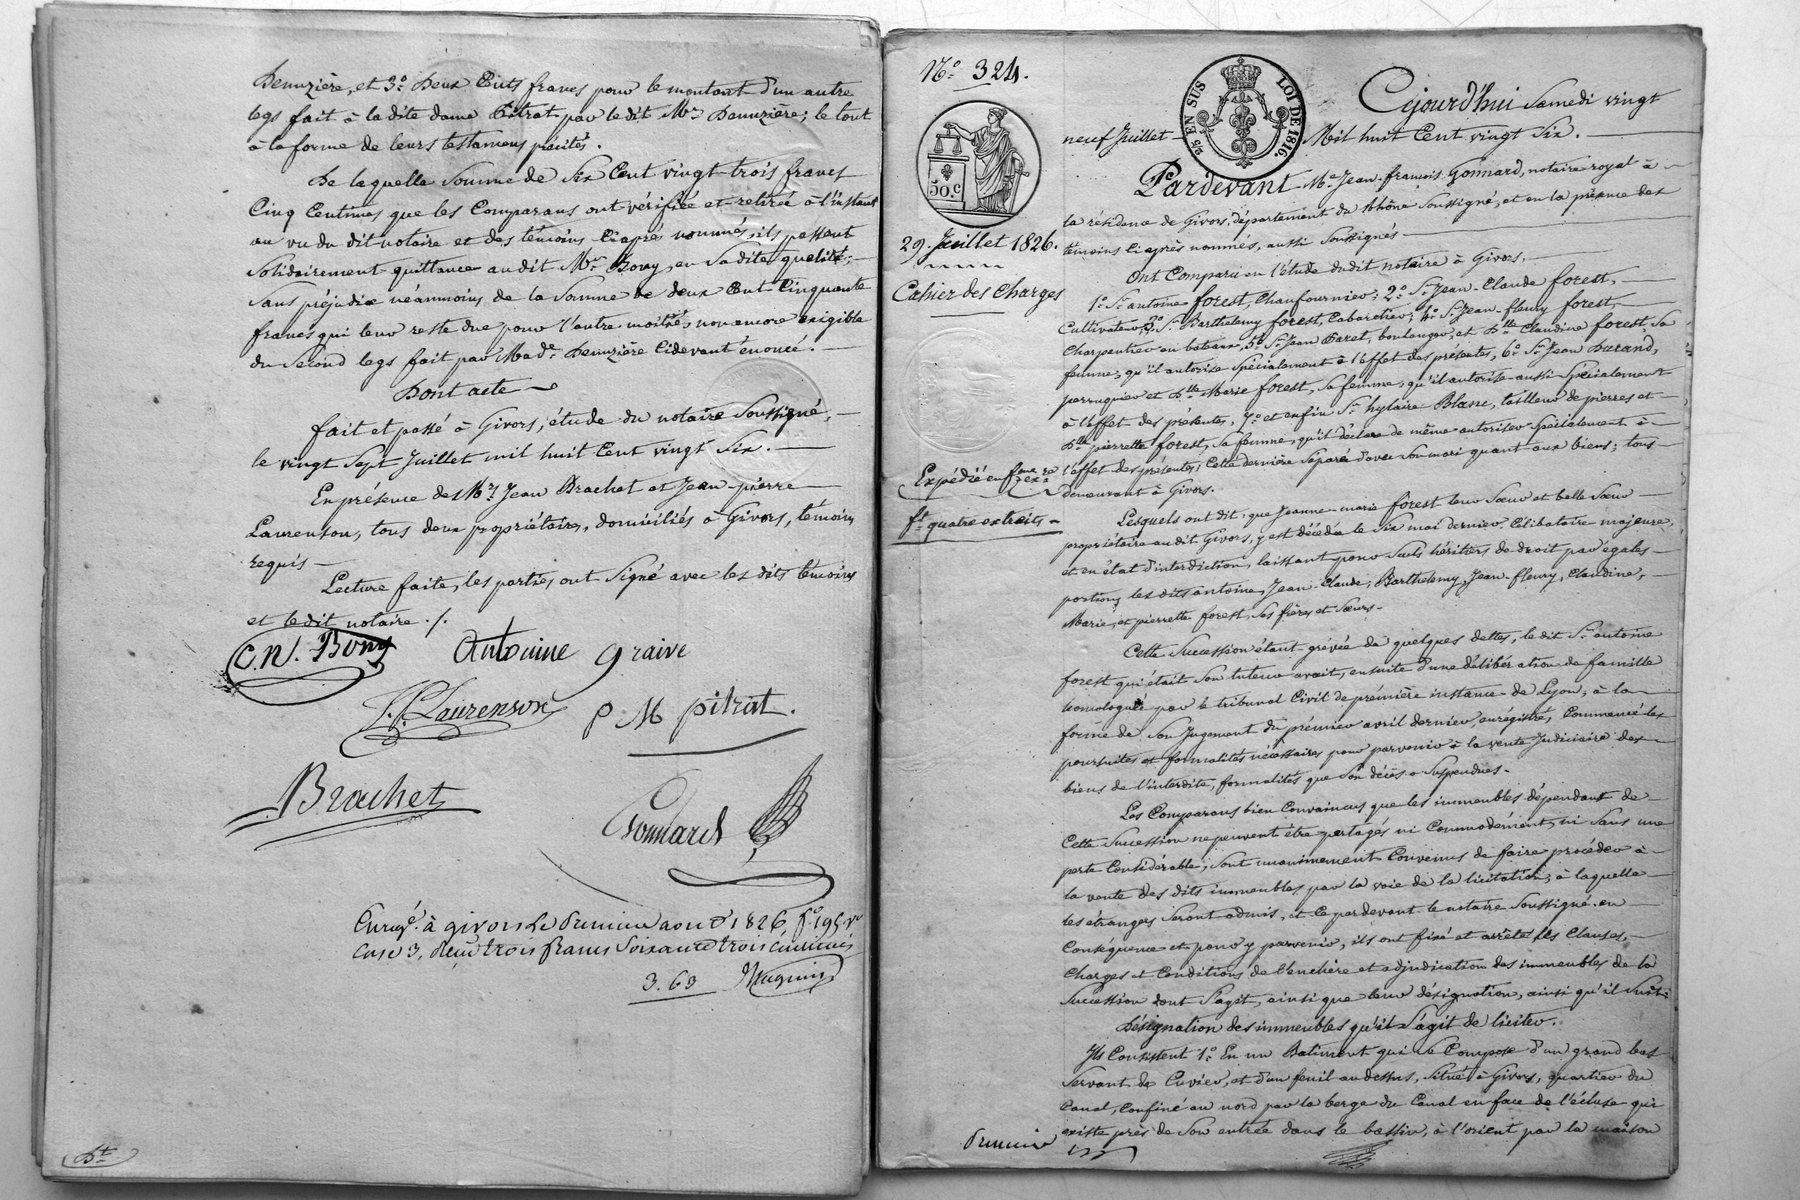 Denuzière, et 3.° Deux Cents francs pour le montant d'un autre
legs fait à la dite dame Pitrat par le dit Mr. Denuzière; le tout
à la forme de leurs testamens précités.
De laquelle Somme de Six Cent vingt-trois francs
Cinq Centimes que les Comparans ont vérifiée et retirée à l'instant
au vu du dit notaire et des témoins Ciaprès nommés, ils passent
Solidairement quittance au dit Mr. Bony, en Sa dite qualité;
Sans préjudice néanmoins de la Somme de deux Cent-Cinquante
francs qui leur reste due pour l'autre moitié, non encore exigible
du Second legs fait par Made. Denuzière Cidevant énoncé.
Dont acte
fait et passé à Givors, étude du notaire Soussigné,
le vingt Sept Juillet mil huit Cent vingt Six.
En présence de Mrs. Jean Brachet et Jean-pierre
Laurenson, tous deux propriétaires, domiciliés à Givors, témoins
requis
Lecture faite, les parties ont Signé avec les dits témoins
et le dit notaire ./.
C.N. Bony Antoinne graive
J.P. Laurenson p M pitrat.
Brachet
Gonnard
Enregé. à givors Le Premier aout 1826, f.° 195 vo
Case 3, Reçu trois francs Soixante trois centimes
3.63
N.° 324.
25 EN SUS
LOI DE 1816.
50.c
29. Juillet 1826.
Cahier des Charges
Expédié en
ft. quatre extraits
Cejourd'hui Samedi vingt
neuf Juillet Mil huit Cent vingt Six.
Pardevant Me. Jean-francois Gonnard, notaire royal à
la résidence de Givors, département du Rhône Soussigné, et en la présence des
témoins Ciaprès nommés, aussi Soussignés
Ont Comparu en l'étude du dit notaire à Givors,
1.° Sr. antoine forest, Chaufournier; 2.° Sr. Jean-Claude forest,
Cultivateur; 3.° Sr. Barthelemy forest, Cabaretier; 4.° Sr. Jean-fleury forest,
Charpentier en bateaux, 5.° Sr. Jean Paret, boulanger, et Dlle. Claudine forest, Sa
femme, qu'il autorise Spécialement à l'effet des présentes, 6.° Sr. Jean Durand,
perruquier et Dlle. Marie forest, Sa femme, qu'il autorise aussi Spécialement
à l'effet des présentes, 7.° et enfin Sr. hylaire Blanc, tailleur de pierres et
Dlle. pierrette forest, Sa femme, qu'il déclare de même autoriser Spécialement à
l'effet des présentes; Cette dernière Séparée d'avec Son mari quant aux biens; tous
demeurant à Givors.
Lesquels ont dit, que Jeanne-marie forest leur Sœur et belle Sœur
propriétaire au dit Givors, y est décédée le Six mai dernier, Célibataire majeure,
et en état d'interdiction, laissant pour Seuls héritiers de droit par égales
portions, les dits antoine, Jean-Claude, Barthelemy, Jean-fleury, Claudine,
Marie, et pierrette forest, Ses frères et Sœurs.
Cette Succession étant grévée de quelques dettes, le dit Sr. antoine
forest qui était Son tuteur avait, ensuite d'une délibération de famille
homologuée par le tribunal Civil de première instance de Lyon, à la
forme de Son Jugement du premier avril dernier, enrégistré, Commencé les
poursuites et formalités nécessaires pour parvenir à la vente Judiciaire des
biens de l'interdite, formalités que Son décès a Suspendues.
Les Comparans bien Convaincus que les immeubles dépendant de
Cette Succession ne peuvent être partagés ni Commodément, ni Sans une
perte Considérable, Sont unanimement Convenus de faire procéder à
la vente des dits immeubles par la voie de la licitation, à laquelle
les étrangers Seront admis, et Ce pardevant le notaire Soussigné. en
Conséquence et pour y parvenir, ils ont fixé et arrêté les Clauses,
Charges et Conditions de l'enchère et adjudication des immeubles de la
Succession dont S'agit, ainsi que leur désignation, ainsi qu'il Suit:
Désignation des immeubles qu'il S'agit de liciter.
Ils Consistent 1.° En un Batiment qui se Compose d'un grand bas
Servant de Cuvier, et d'un fenil au dessus, Situé à Givors, quartier du
Canal, Confiné au nord par la berge du Canal en face de l'écluse qui
existe près de Son entrée dans le bassin, à l'orient par la maison
Premier